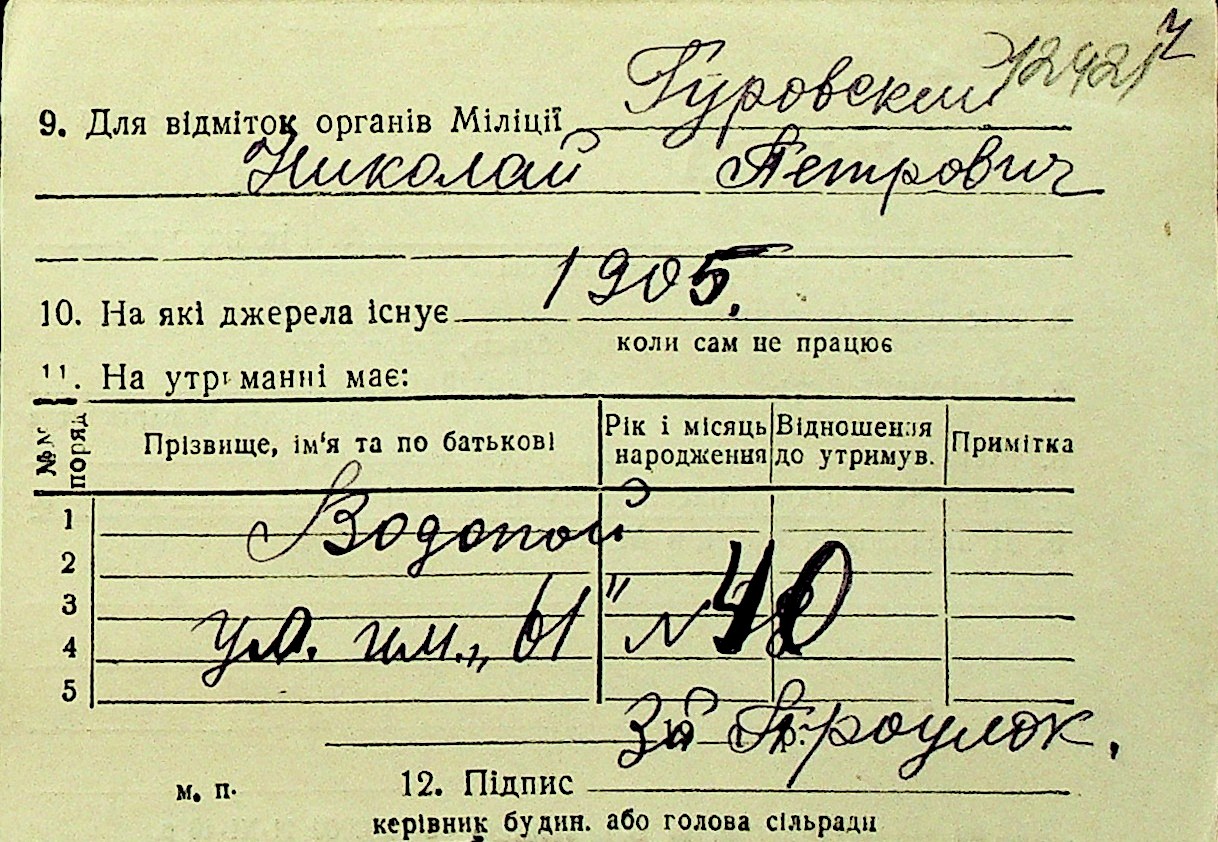 12921 7
9. Для відміток органів Міліції Гуровский
Николай Петрович
10. На які джерела існує 1905.
коли сам не працює
11. На утриманні має:
№№ поряд Прізвище, ім'я та по батькові Рік і місяць народження Відношення до утримув. Примітка
1 Водопой
2
3
4 ул. им. „61" № 40
5
3й Проулок.
м. п. 12. Підпис
керівник будин. або голова сільради